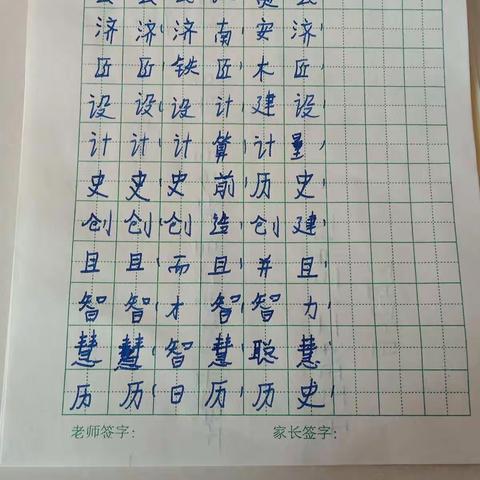 济济济南安济
匠匠铁匠木匠
设设设计建设
计计计算计量
史史史前历史
创创创造创建
且且而且并且
智智才智智力
慧慧智慧聪慧
历历日历历史
老师签字: 家长签字: